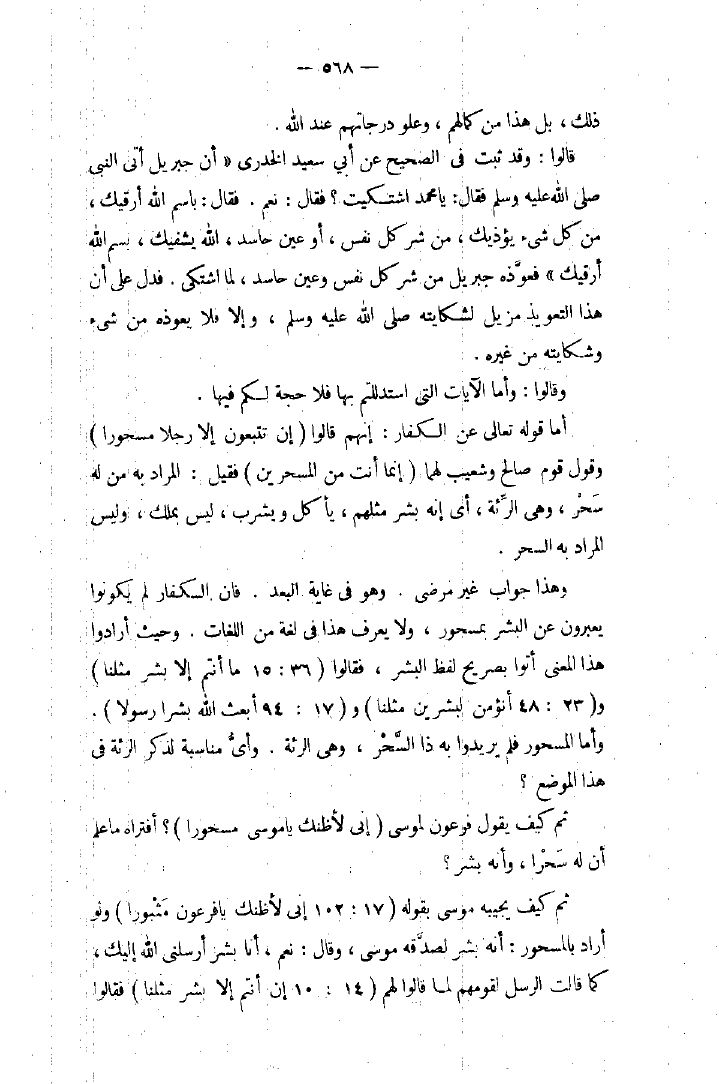 — ٥٦٨ —
ذلك ، بل هذا من كمالهم ، وعلو درجاتهم عند الله .
قالوا : وقد ثبت فى الصحيح عن أبي سعيد الخدرى « أن جبريل أتى النبى
صلى الله عليه وسلم فقال: يا محمد اشتكيت ؟ فقال : نعم . فقال : باسم الله أرقيك ،
من كل شىء يؤذيك ، من شر كل نفس ، أو عين حاسد ، الله يشفيك ، بسم الله
أرقيك » فعوَّذه جبريل من شر كل نفس وعين حاسد ، لما اشتكى . فدل على أن
هذا التعويذ مزيل لشكايته صلى الله عليه وسلم ، وإلا فلا يعوذه من شىء
وشكايته من غيره .
وقالوا : وأما الآيات التى استدللتم بها فلا حجة لكم فيها .
أما قوله تعالى عن الكفار : إنهم قالوا ( إن تتبعون إلا رجلا مسحورا )
وقول قوم صالح وشعيب لهما ( إنما أنت من المسحرين ) فقيل : المراد به من له
سَحْر ، وهى الرِّئة ، أى إنه بشر مثلهم ، يأكل ويشرب ، ليس بملك ، وليس
المراد به السحر .
وهذا جواب غير مرضى . وهو فى غاية البعد . فان الكفار لم يكونوا
يعبرون عن البشر بمسحور ، ولا يعرف هذا فى لغة من اللغات . وحيث أرادوا
هذا المعنى أتوا بصريح لفظ البشر ، فقالوا ( ٣٦ : ١٥ ما أنتم إلا بشر مثلنا )
و( ٢٣ : ٤٨ أنؤمن لبشرين مثلنا ) و ( ١٧ : ٩٤ أبعث الله بشرا رسولا ) .
وأما المسحور فلم يريدوا به ذا السَّحْر ، وهى الرئة . وأىُّ مناسبة لذكر الرئة فى
هذا الموضع ؟
ثم كيف يقول فرعون لموسى ( إنى لأظنك ياموسى مسحورا ) ؟ أفتراه ما علم
أن له سَحْرا ، وأنه بشر ؟
ثم كيف يجيبه موسى بقوله ( ١٧ : ١٠٢ إنى لأظنك يافرعون مَثْبورا ) ولو
أراد بالمسحور : أنه بشر لصدَّقه موسى ، وقال : نعم ، أنا بشر أرسلنى الله إليك ،
كما قالت الرسل لقومهم لما قالوا لهم ( ١٤ : ١٠ إن أنتم إلا بشر مثلنا ) فقالوا